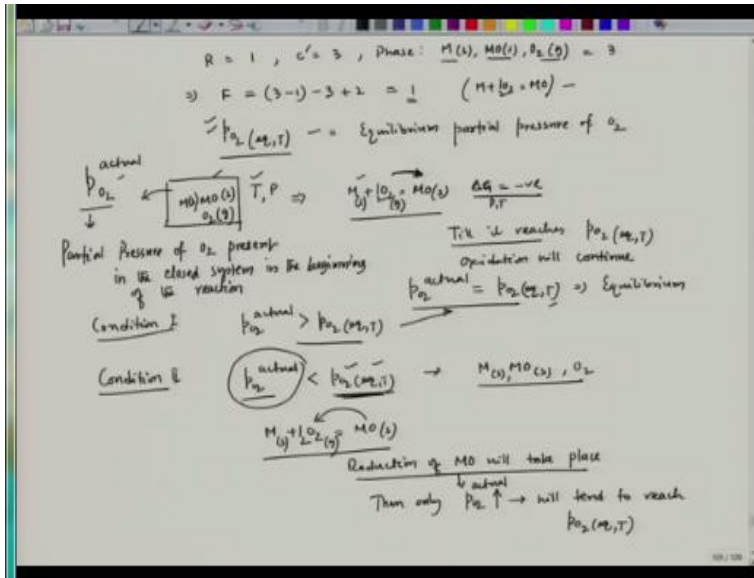 R = 1 , C' = 3 , Phase: M(s), MO(s), O2(g) = 3
⇒ F = (3-1) - 3 + 2 = 1 (M + ½O2 = MO) -
= pO2(eq,T) - = Equilibrium partial pressure of O2
pO2 actual ← M(s) MO(s) O2(g) T, P ⇒ M(s) + ½O2(g) = MO(s) ΔG = -ve P,T
Partial Pressure of O2 present
in the closed system in the beginning
of the reaction
Till it reaches pO2(eq,T)
oxidation will continue
pO2 actual = pO2(eq,T) ⇒ Equilibrium
Condition I pO2 actual > pO2(eq,T)
Condition II pO2 actual < pO2(eq,T) → M(s), MO(s), O2
M(s) + ½O2(g) = MO(s)
Reduction of MO will take place
Then only pO2 actual ↑ → will tend to reach
pO2(eq,T)